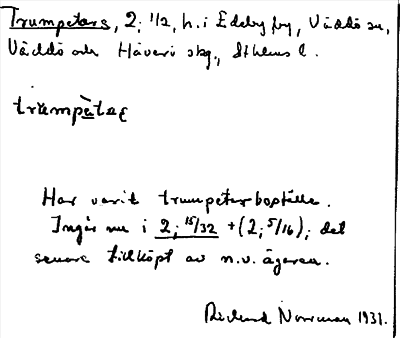 Trumpetars, 2; 1/2, h. i Edeby by, Väddö sn,
Väddö och Häverö skg., Sthlms l.
trùmpètaʂ
Har varit trumpetarboställe.
Ingår nu i 2; 15/32 + (2; 5/16); det
senare tillköpt av n.v. ägaren.
Rickard Norrman 1931.